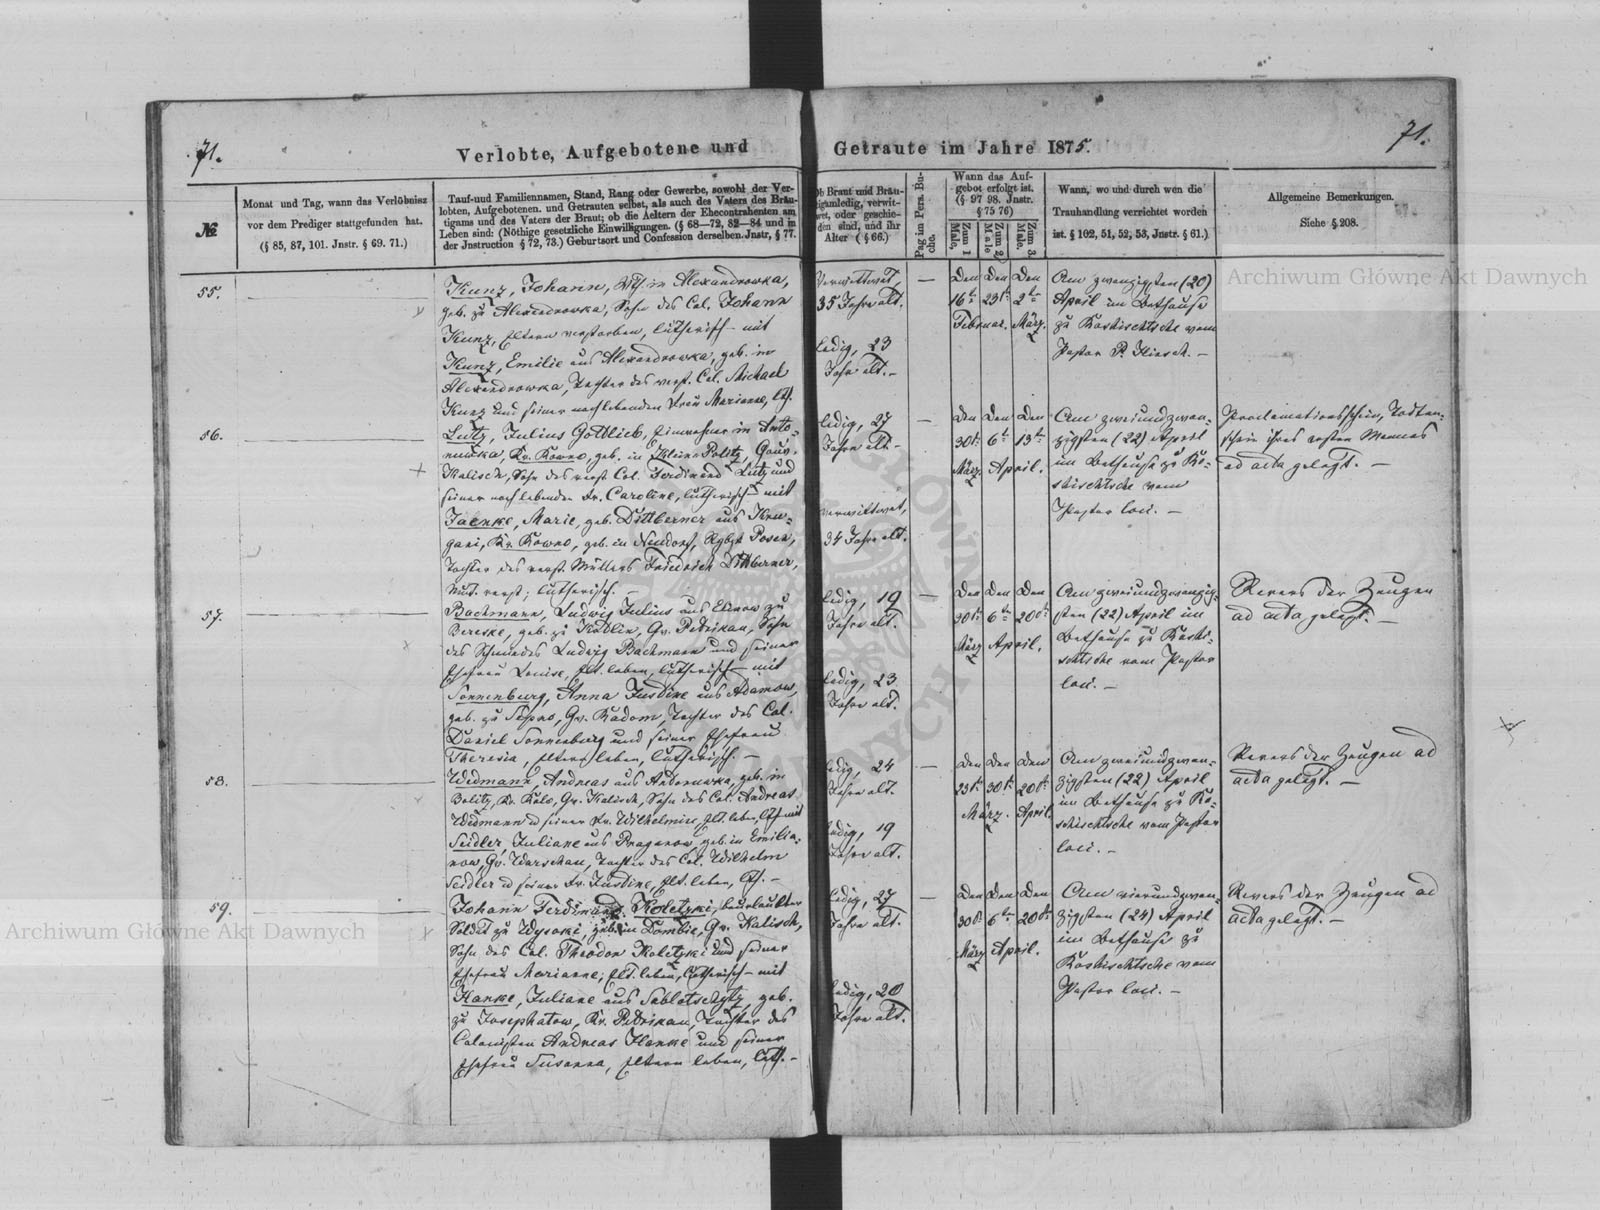 71.
Verlobte, Aufgebotene und
Getraute im Jahre 1875.
71.
№
Monat und Tag, wann das Verlöbnisz
vor dem Prediger stattgefunden hat.
(§ 85, 87, 101. Jnstr. § 69. 71.)
Tauf-und Familiennamen, Stand, Rang oder Gewerbe, sowohl der Ver-
lobten, Aufgebotenen. und Getrauten selbst, als auch des Vaters des Bräu-
tigams und des Vaters der Braut; ob die Aeltern der Ehecontrahenten am
Leben sind: (Nöthige gesetzliche Einwilligungen. (§ 68—72, 82—84 und in
der Jnstruction § 72, 73.) Geburtsort und Confession derselben. Jnstr, § 77.
Ob Braut und Bräu-
tigam ledig, verwit-
wet, oder geschie-
den sind, und ihr
Alter (§ 66.)
Pag im Pers. Bu-
che.
Wann das Auf-
gebot erfolgt ist.
(§ 97 98. Jnstr.
§ 75 76)
Zum 1 Male,
Zum 2 Male
Zum 3. Male,
Wann, wo und durch wen die
Trauhandlung verrichtet worden
ist. § 102, 51, 52, 53, Jnstr. § 61.)
Allgemeine Bemerkungen.
Siehe § 208.
55.
Kunz, Johann, in Alexandrowka,
geb. zu Alexandrowka, Sohn des Col. Johann
Kunz, Eltern verstorben, lutherisch – mit
Kunz, Emilie aus Alexandrowka, geb. in
Alexandrowka, Tochter des verst. Col. Michael
Kunz und seiner nachlebenden Frau Marianne, lth.
Verwittwet,
35 Jahre alt.
ledig, 23
Jahr alt. –
—
Den 16t.
Den 23t.
Februar.
Den 2te
März.
Am zwanzigsten (20)
April im Bethause
zu Roshischtsche vom
Pastor –
56.
Lutz, Julius Gottlieb, Einwohner in Anto-
nuwka, Kr. Kowno, geb. in Klein Politz, Gouv.
Kalisch, Sohn des verst. Col. Ferdinand Lutz und
seiner nachlebenden Fr. Caroline, lutherisch – mit
Jaenke, Marie, geb. Dittberner aus
Kr. Kowno, geb. in Neudorf, Rgbz Posen,
Tochter des verst. Müllers Friedrich Dittberner,
Mut. verst; lutherisch.
ledig, 27
Jahre alt –
Verwittwet,
34 Jahre alt.
—
Den 30t.
März
Den 6t
Den 13te
April.
Am zweiundzwan-
zigsten (22) April
im Bethause zu Ro-
shischtsche vom
Pastor loci. –
Proclamationsschein, Todten-
schein ihres ersten Mannes
ad acta gelegt. –
57.
Bachmann, Ludwig Julius aus zu
Bereske, geb. zu Koblin, Gv. Petrikau, Sohn
des Schmiedes Ludwig Bachmann und seiner
Ehefrau Louise, Elt. leben, lutherisch – mit
Sonnenburg, Anna Justine aus Adamow,
geb. zu Gv. Radom, Tochter des Col.
Daniel Sonnenburg und seiner Ehefrau
Theresia, Eltern leben, lutherisch. –
ledig, 19
Jahre alt.
ledig, 23
Jahre alt.
—
Den 30t.
März
Den 6te
Den 20st
April.
Am zweiundzwanzig-
sten (22) April im
Bethause zu Roshi-
schtsche vom Pastor
loci. –
Revers der Zeugen
ad acta gelegt. –
58.
Wedmann, Andreas aus geb. in
Bolitz, Kr. Kolo, Gv. Kalisch, Sohn des Col. Andreas
Wedmann u seiner Fr. Wilhelmine, Elt. leben, lth mit
Seidler, Juliane aus geb. in Emilia-
now, Gv. Warschau, Tochter des Col. Wilhelm
Seidler u seiner Fr. Justine, Elt. leben, lth. –
ledig, 24
Jahre alt.
ledig, 19
Jahre alt.
—
Den 23t.
Den 30t.
März.
Den 20st.
April.
Am zweiundzwan-
zigsten (22) April
im Bethause zu Ro-
shischtsche vom Pastor
loci. –
Revers der Zeugen ad
acta gelegt. –
59.
Johann Ferdinand Koletzki, beurlaubter
Soldat zu Wysoki, geb. in Dombie, Gv. Kalisch,
Sohn des Col. Theodor Koletzki und seiner
Ehefrau Marianne; Elt. leben, lutherisch – mit
Hanke, Juliane aus geb.
zu Josephatow, Kr. Petrikau, Tochter des
Colonisten Andreas Hanke und seiner
Ehefrau Susanna, Eltern leben, luth. –
ledig, 27
Jahre alt.
ledig, 20
Jahre alt.
—
Den 30t
März
Den 6te
Den 20st.
April.
Am vierundzwan-
zigsten (24) April
im Bethause zu
Roshischtsche vom
Pastor loci. –
Revers der Zeugen ad
acta gelegt. –
Archiwum Główne Akt Dawnych
Archiwum Główne Akt Dawnych